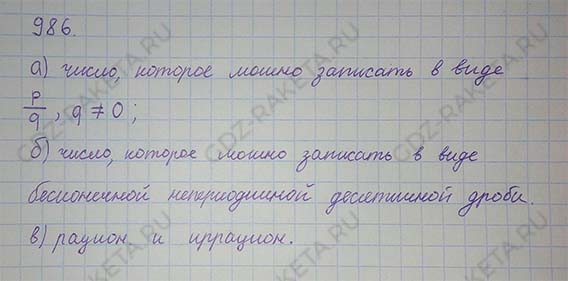 986.
а) число, которое можно записать в виде
p/q, q ≠ 0;
б) число, которое можно записать в виде
бесконечной непериодичной десятичной дроби.
в) рацион и иррацион.
GDZ-RAKETA.RU
GDZ-RAKETA.RU
GDZ-RAKETA.RU